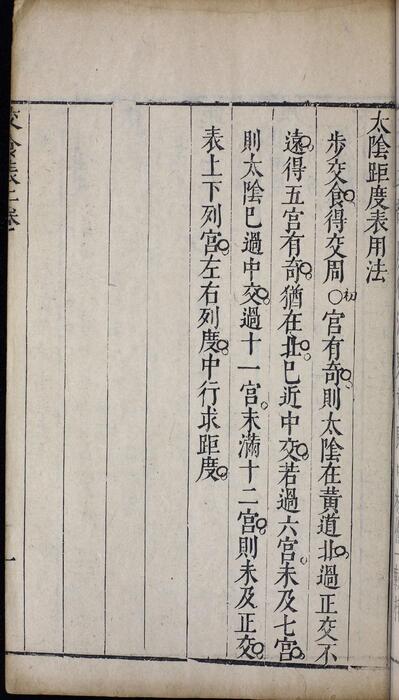 太陰距度表用法
步交食得交周〇初宮有奇則太陰在黃道北過正交不
遠得五宮有奇猶在北已近中交若過六宮未及七宮
則太陰已過中交過十一宮未滿十二宮則未及正交
表上下列宮左右列度中行求距度
交食表二卷
一